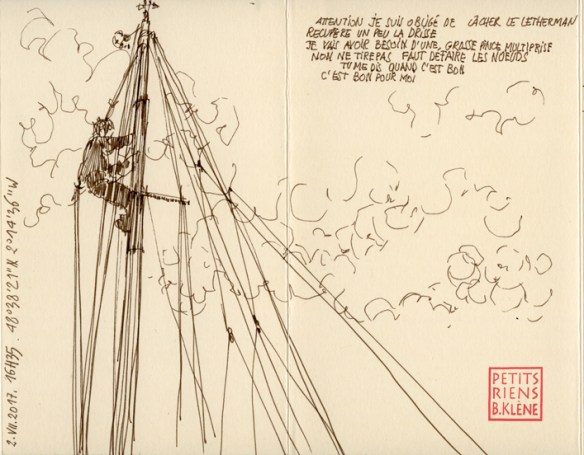 ATTENTION JE SUIS OBLIGÉ DE LÂCHER LE LETHERMAN
RECUPERE UN PEU LA DRISSE
JE VAIS AVOIR BESOIN D'UNE GRASSE PINCE MULTIPRISE
NON NE TIRE PAS FAUT DEFAIRE LES NOEUDS
TU ME DIS QUAND C'EST BON
C'EST BON POUR MOI
2.VII.2017. 16H35.
PETITS
RIENS
B.KLÈNE